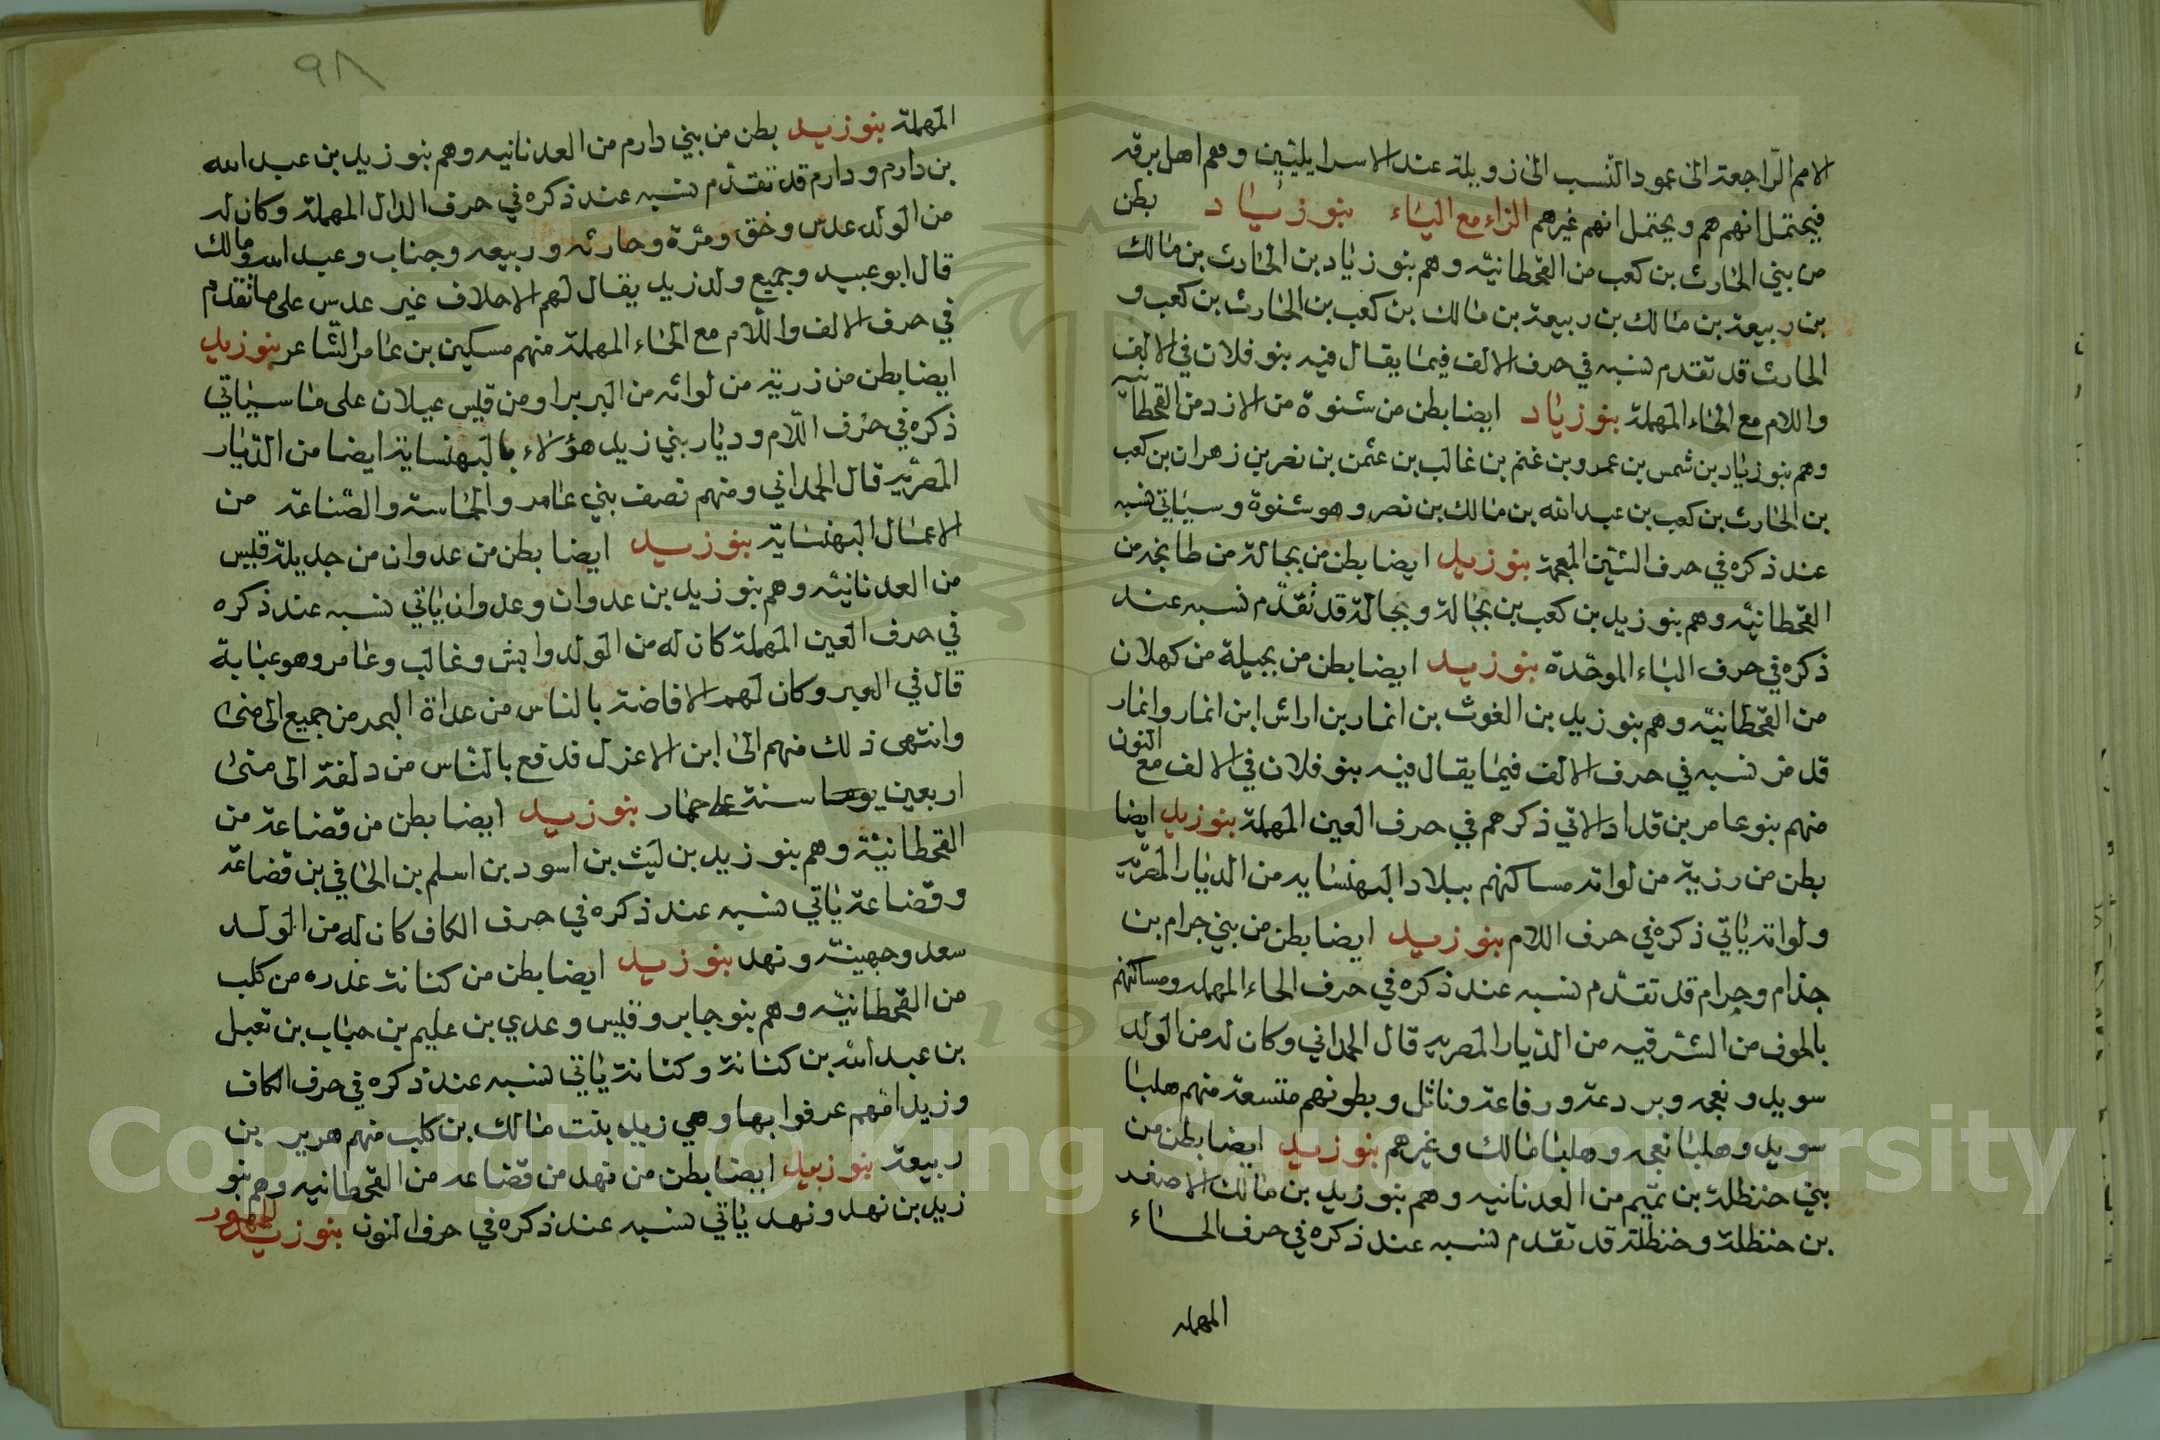 الامم الراجعة الى عمود النسب الى زويلة عند الاسرايليين وهم اهل برقه
فيحتمل انهم هم ويحتمل انهم غيرهم الزاء مع الياء بنو زياد بطن
من بني الحارث بن كعب من القحطانيه وهم بنو زياد بن الحارث بن مالك
بن ربيعة بن مالك بن ربيعة بن مالك بن كعب بن الحارث بن كعب و
الحارث قد تقدم نسبه في حرف الالف فيما يقال فيه بنو فلان في الالف
واللام مع الحاء المهملة بنو زياد ايضا بطن من شنوة من الازد من القحطانيه
وهم بنو زياد بن شمس بن عمرو بن غنم بن غالب بن عثمن بن نصر بن زهران بن كعب
بن الحارث بن كعب بن عبد الله بن مالك بن نصر وهو شنوة وسياتي نسبه
عند ذكره في حرف الشين المعجمة بنو زيد ايضا بطن من بجالة من طابخه من
القحطانيه وهم بنو زيد بن كعب بن بجالة وبجالة قد تقدم نسبه عند
ذكره في حرف الباء الموحدة بنو زيد ايضا بطن من بجيلة من كهلان
من القحطانية وهم بنو زيد بن الغوث بن انمار بن اراش ابن انمار وانمار
قد مر نسبه في حرف الالف فيما يقال فيه بنو فلان في الالف مع النون
منهم بنو عامر بن قداد الاتي ذكرهم في حرف العين المهملة بنو زيد ايضا
بطن من رزية من لواته مساكنهم ببلاد البهنسايه من الديار المصريه
ولواته ياتي ذكره في حرف اللام بنو زيد ايضا بطن من بني جرام بن
جذام وجرام قد تقدم نسبه عند ذكره في حرف الحاء المهمله ومساكنهم
بالحوف من الشرقيه من الديار المصريه قال الحمداني وكان له من الولد
سويد ونعجه وبردعة ورفاعة وناثل وبطونهم متسعة منهم هلبا
سويد وهلبا نعجه وهلبا مالك وغيرهم بنو زيد ايضا بطن من
بني حنظلة بن تميم من العدنانيه وهم بنو زيد بن مالك الاصغد
بن حنظلة وحنظلة قد تقدم نسبه عند ذكره في حرف الحاء
المهمله
٩٨
المهملة بنو زيد بطن من بني دارم من العدنانيه وهم بنو زيد بن عبد الله
بن دارم ودارم قد تقدم نسبه عند ذكره في حرف الدال المهملة وكان له
من الولد عدس وحق ومرة وحارثه وربيعه وجناب وعبد الله ومالك
قال ابو عبيد وجميع ولد زيد يقال لهم الاحلاف غير عدس على ما تقدم
في حرف الالف واللام مع الحاء المهملة منهم مسكين بن عامر الشاعر بنو زيد
ايضا بطن من زرية من لواته من البربر او من قيس عيلان على ما سياتي
ذكره في حرف اللام وديار بني زيد هؤلاء بالبهنساية ايضا من الديار
المصريه قال الحمداني ومنهم نصف بني عامر والحماسة والصناعة من
الاعمال البهنساية بنو زيد ايضا بطن من عدوان من جديلة قيس
من العدنانيه وهم بنو زيد بن عدوان وعدوان ياتي نسبه عند ذكره
في حرف العين المهملة كان له من الولد وابش وغالب وعامر وهو عباية
قال في العبر وكان لهم الافاضة بالناس من غداة البحر من جميع الى منى
وانتهى ذلك منهم الى ابن الاعزل قد قع بالناس من دلفة الى منى
اربعين سنة على حمار بنو زيد ايضا بطن من قضاعة من
القحطانية وهم بنو زيد بن ليث بن اسود بن اسلم بن الحافي بن قضاعة
وقضاعة ياتي نسبه عند ذكره في حرف الكاف كان له من الولد
سعد وجهينه ونهد بنو زيد ايضا بطن من كنانة عذره من كلب
من القحطانيه وهم بنو جابر وقيس وعدي بن عليم بن حباب بن تعبل
بن عبد الله بن كنانة وكنانة ياتي نسبه عند ذكره في حرف الكاف
وزيد امهم عرفوا بها وهي زيد بنت مالك بن كلب منهم هرير بن
ربيعة بنو زيد ايضا بطن من نهد من قضاعه من القحطانيه وهم بنو
زيد بن نهد ونهد ياتي نسبه عند ذكره في حرف النون بنو زيد
Copyright © King Saud University